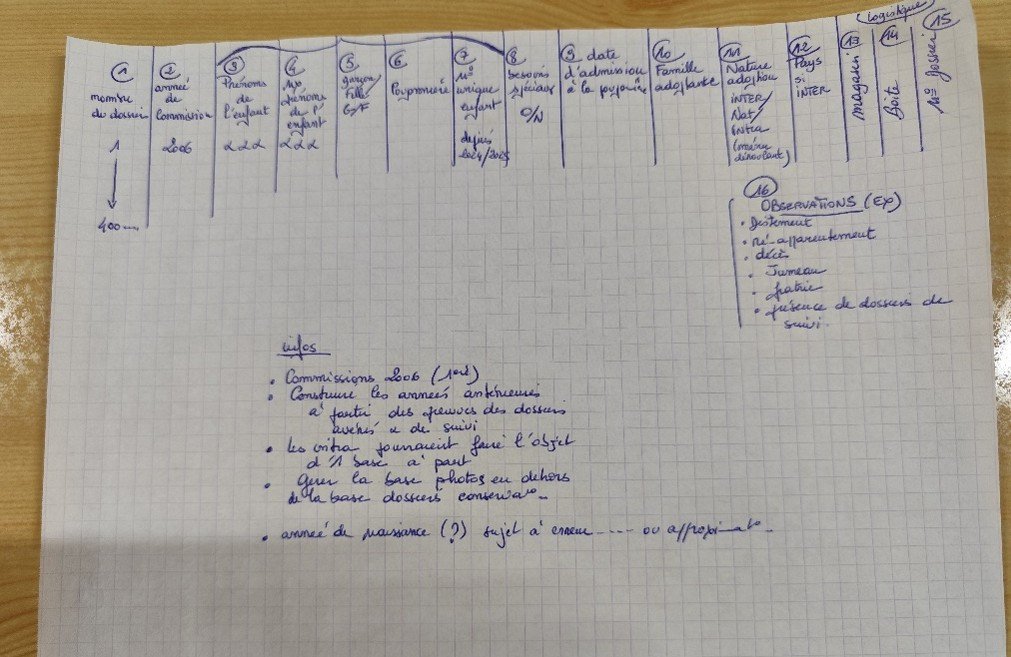 Logistique
1
nombre
du dossier
1
400
2
année
de
Commission
2006
3
Prénoms
de
l'enfant
4
prénoms
de l'
enfant
5
garçon
Fille
G/F
6
Pouponnière
7
N°
unique
enfant
depuis
2024/2025
8
besoins
spéciaux
O/N
9 date
d'admission
à la pouponnière
10
Famille
adoptante
11
Nature
adoption
INTER/
Nat/
Intra
(menu
déroulant)
12
Pays
si
INTER
13
Magasin
14
Boîte
15
N° dossier
16
OBSERVATIONS (Ex)
• Désistement
• ré-apparentement
• décès
• Jumeau
• fratrie
• présence de dossiers de
suivi.
infos
• Commissions 2006 (1ere)
• Construire les années antérieures
à partir des preuves des dossiers
avérés & de suivi
• Les intra pourraient faire l'objet
d'1 base à part
• Gérer la base photos en dehors
de la base dossiers
• année de naissance (?) sujet à erreur ---- ou